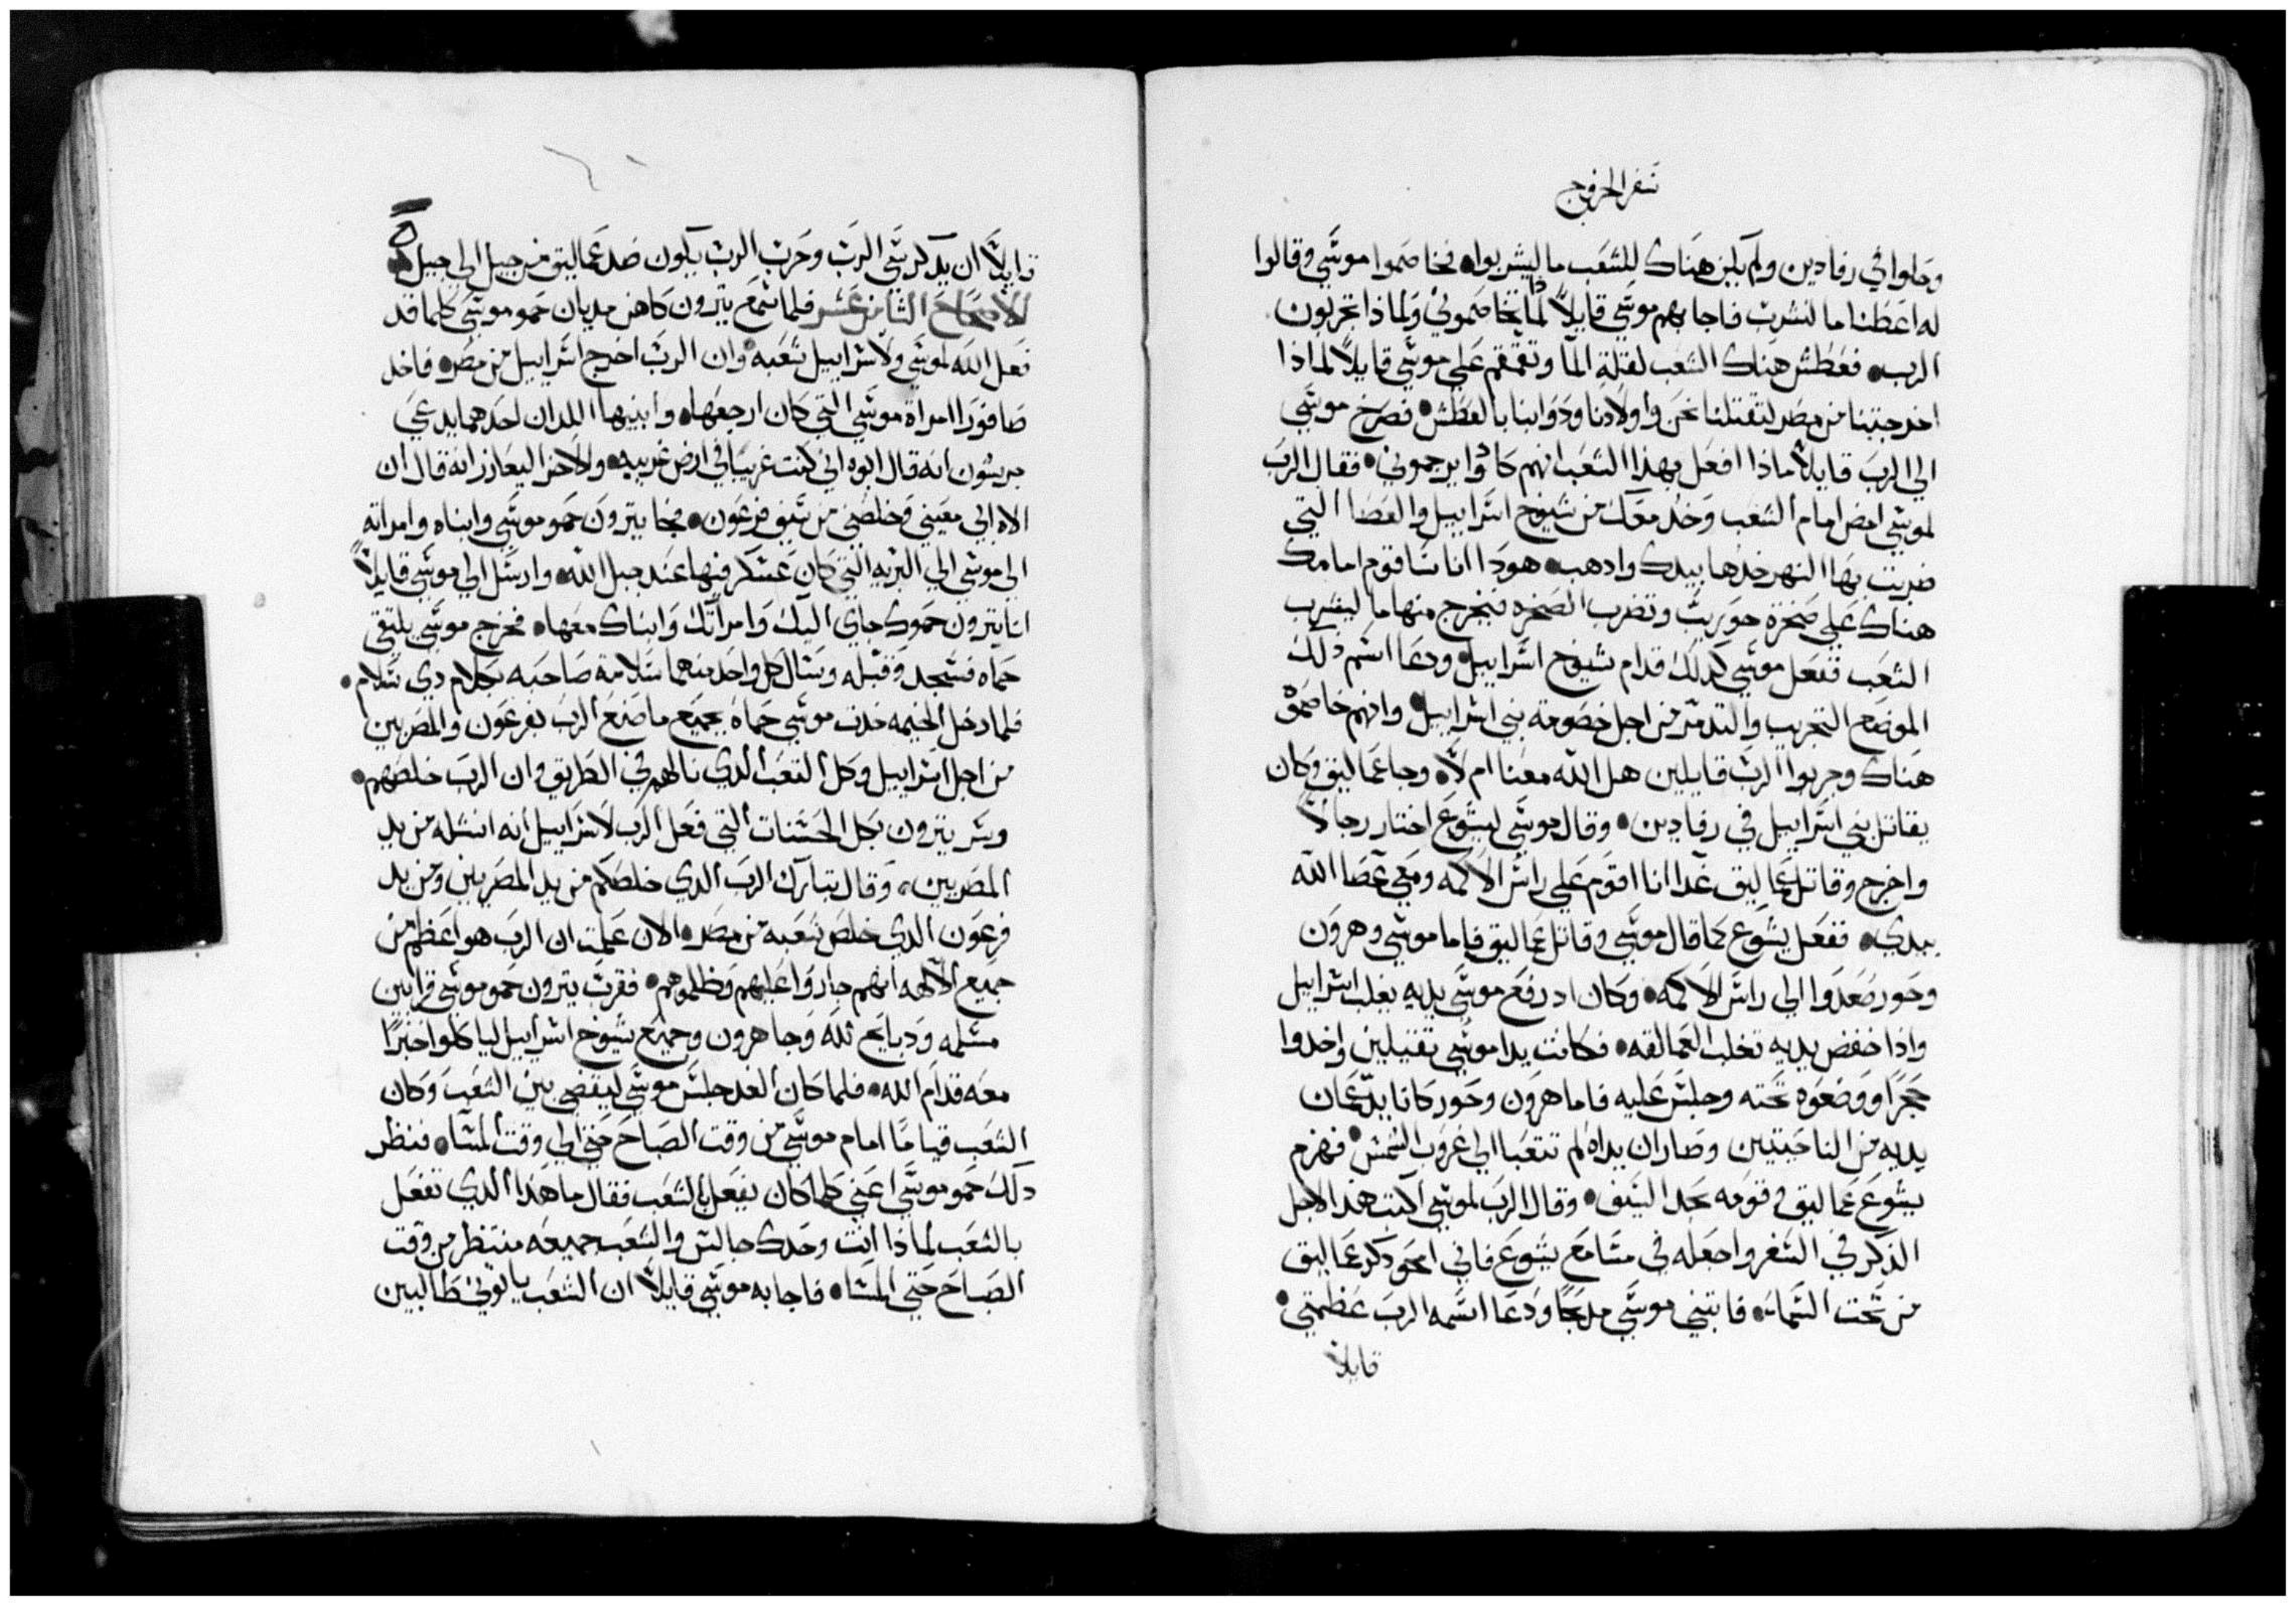 سفر الخروج
وحلوا في رفادين ولم يكن هناك للشعب ما ليشربوا، فخاصموا موسى وقالوا
له اعطنا ما لنشرب فاجابهم موسى قايلاً لماذا تخاصموني ولماذا تجربون
الرب، فعطش هناك الشعب لقلة المآ وتقمقم على موسى قايلاً لماذا
اخرجتنا من مصر لتقتلنا نحن واولادنا ودوابنا بالعطش، فصرخ موسى
الي الرب قايلاً ماذا افعل بهذا الشعب انهم كادوا يرجموني، فقال الرب
لموسي امض امام الشعب وخذ معك من شيوخ اسراييل والعصا التي
ضربت بها النهر خذها بيدك وادهب، هوذا انا ساقوم امامك
هناك على صخرة حوريب وتضرب الصخره فيخرج منها ما ليشرب
الشعب ففعل موسى كدلك قدام شيوخ اسراييل، ودعا اسم ذلك
الموضع التجريب والتدمر من اجل خصومة بني اسراييل وانهم خاصموا
هناك وجربوا الرب قايلين هل الله معنا ام لا، وجا عماليق وكان
يقاتل بني اسراييل في رفادين، وقال موسى ليشوع اختار رجالاً
واخرج وقاتل عماليق غدا انا اقوم على راس الاكمه ومعي عصا الله
بيدي، ففعل يشوع كما قال موسى وقاتل عماليق فاما موسى وهرون
وحور صعدوا الى راس الاكمه، وكان اد رفع موسى يديه يغلب اسراييل
واذا خفض يديه تغلب العمالقه، فكانت يدا موسى ثقيلين واخدوا
حجراً ووضعوه تحته وجلس عليه فاما هرون وحور كانا يدعمان
يديه من الناحيتين وصار ان يداه لم تتعبا الى غروب الشمس، فهزم
يشوع عماليق وقومه بحد السيف، وقال الرب لموسى اكتب هذا لاجل
الذكر في السفر واجعله في مسامع يشوع فاني امحو ذكر عماليق
من تحت السماء، فابتني موسى مدبحاً ودعا اسمه الرب عظمتي،
قايلاً
قايلاً ان يد كرسي الرب وحرب الرب يكون ضد عماليق من جيل الى جيل
الاصحاح الثامن عشر فلما سمع يترون كاهن مديان حمو موسى كلما قد
فعل الله لموسى ولاسراييل شعبه وان الرب اخرج اسراييل من مصر، فاخد
صافورا امراة موسى التي كان ارجعها، وابنيها اللدان احدهما يدعي
جرشون انه قال ابوه اني كنت غريبا في ارض غريبه، والاخر اليعازر انه قال ان
الاه ابي معيني وخلصني من سيف فرعون، فجا يترون حمو موسى وابناه وامراته
الى موسى الي البريه التي كان عسكر فيها عند جبل الله، وارسل الى موسى قايلاً
انا يترون حموك جاي اليك وامراتك وابناك معها، فخرج موسى يلتقي
حماه فسجد وقبله وسال كل واحد منهما سلامة صاحبه بكلام دي سلام،
فلما دخل الخيمه حدث موسى حماه بجميع ما صنع الرب بفرعون والمصريين
من اجل اسراييل وكل التعب الدي نالهم في الطريق وان الرب خلصهم،
وسر يترون بكل الحسنات التي فعل الرب لاسراييل انه انشله من يد
المصريين، وقال تبارك الرب الدي خلصكم من يد المصريين ومن يد
فرعون الدي خلص شعبه من مصر، الان علمت ان الرب هو اعظم من
جميع الآلهه انهم جاروا عليهم وظلموهم، فقرب يترون حمو موسى قرابين
مسلمه ودبايح لله وجا هرون وجميع شيوخ اسراييل لياكلوا خبزاً
معه قدام الله، فلما كان الغد جلس موسى ليقضي بين الشعب وكان
الشعب قياماً امام موسى من وقت الصباح حتى الى وقت المسآ، فنظر
دلك حمو موسى اعني كلما كان يفعل بالشعب فقال ما هذا الدي تفعل
بالشعب لماذا انت وحدك جالس والشعب جميعه منتظر من وقت
الصباح حتى المسآ، فاجابه موسى قايلاً ان الشعب ياتوني طالبين